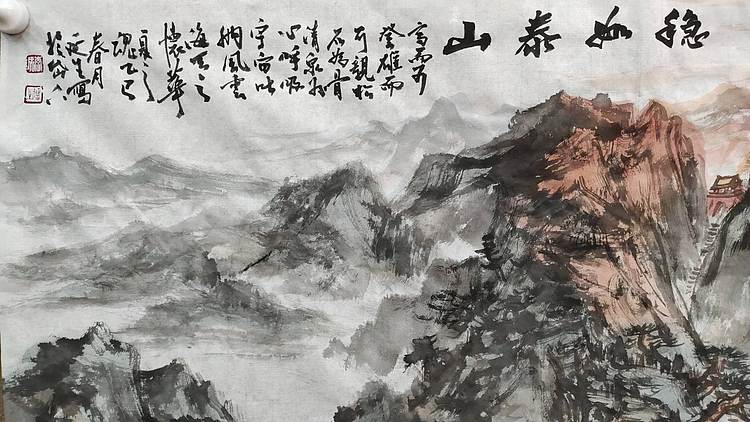 稳如泰山
高而可
登雄而
可亲松
石为骨
清泉为
心呼吸
宇宙吐
纳风云
海天之
怀华
夏之
魂乙巳
春月
延生写
于岱下